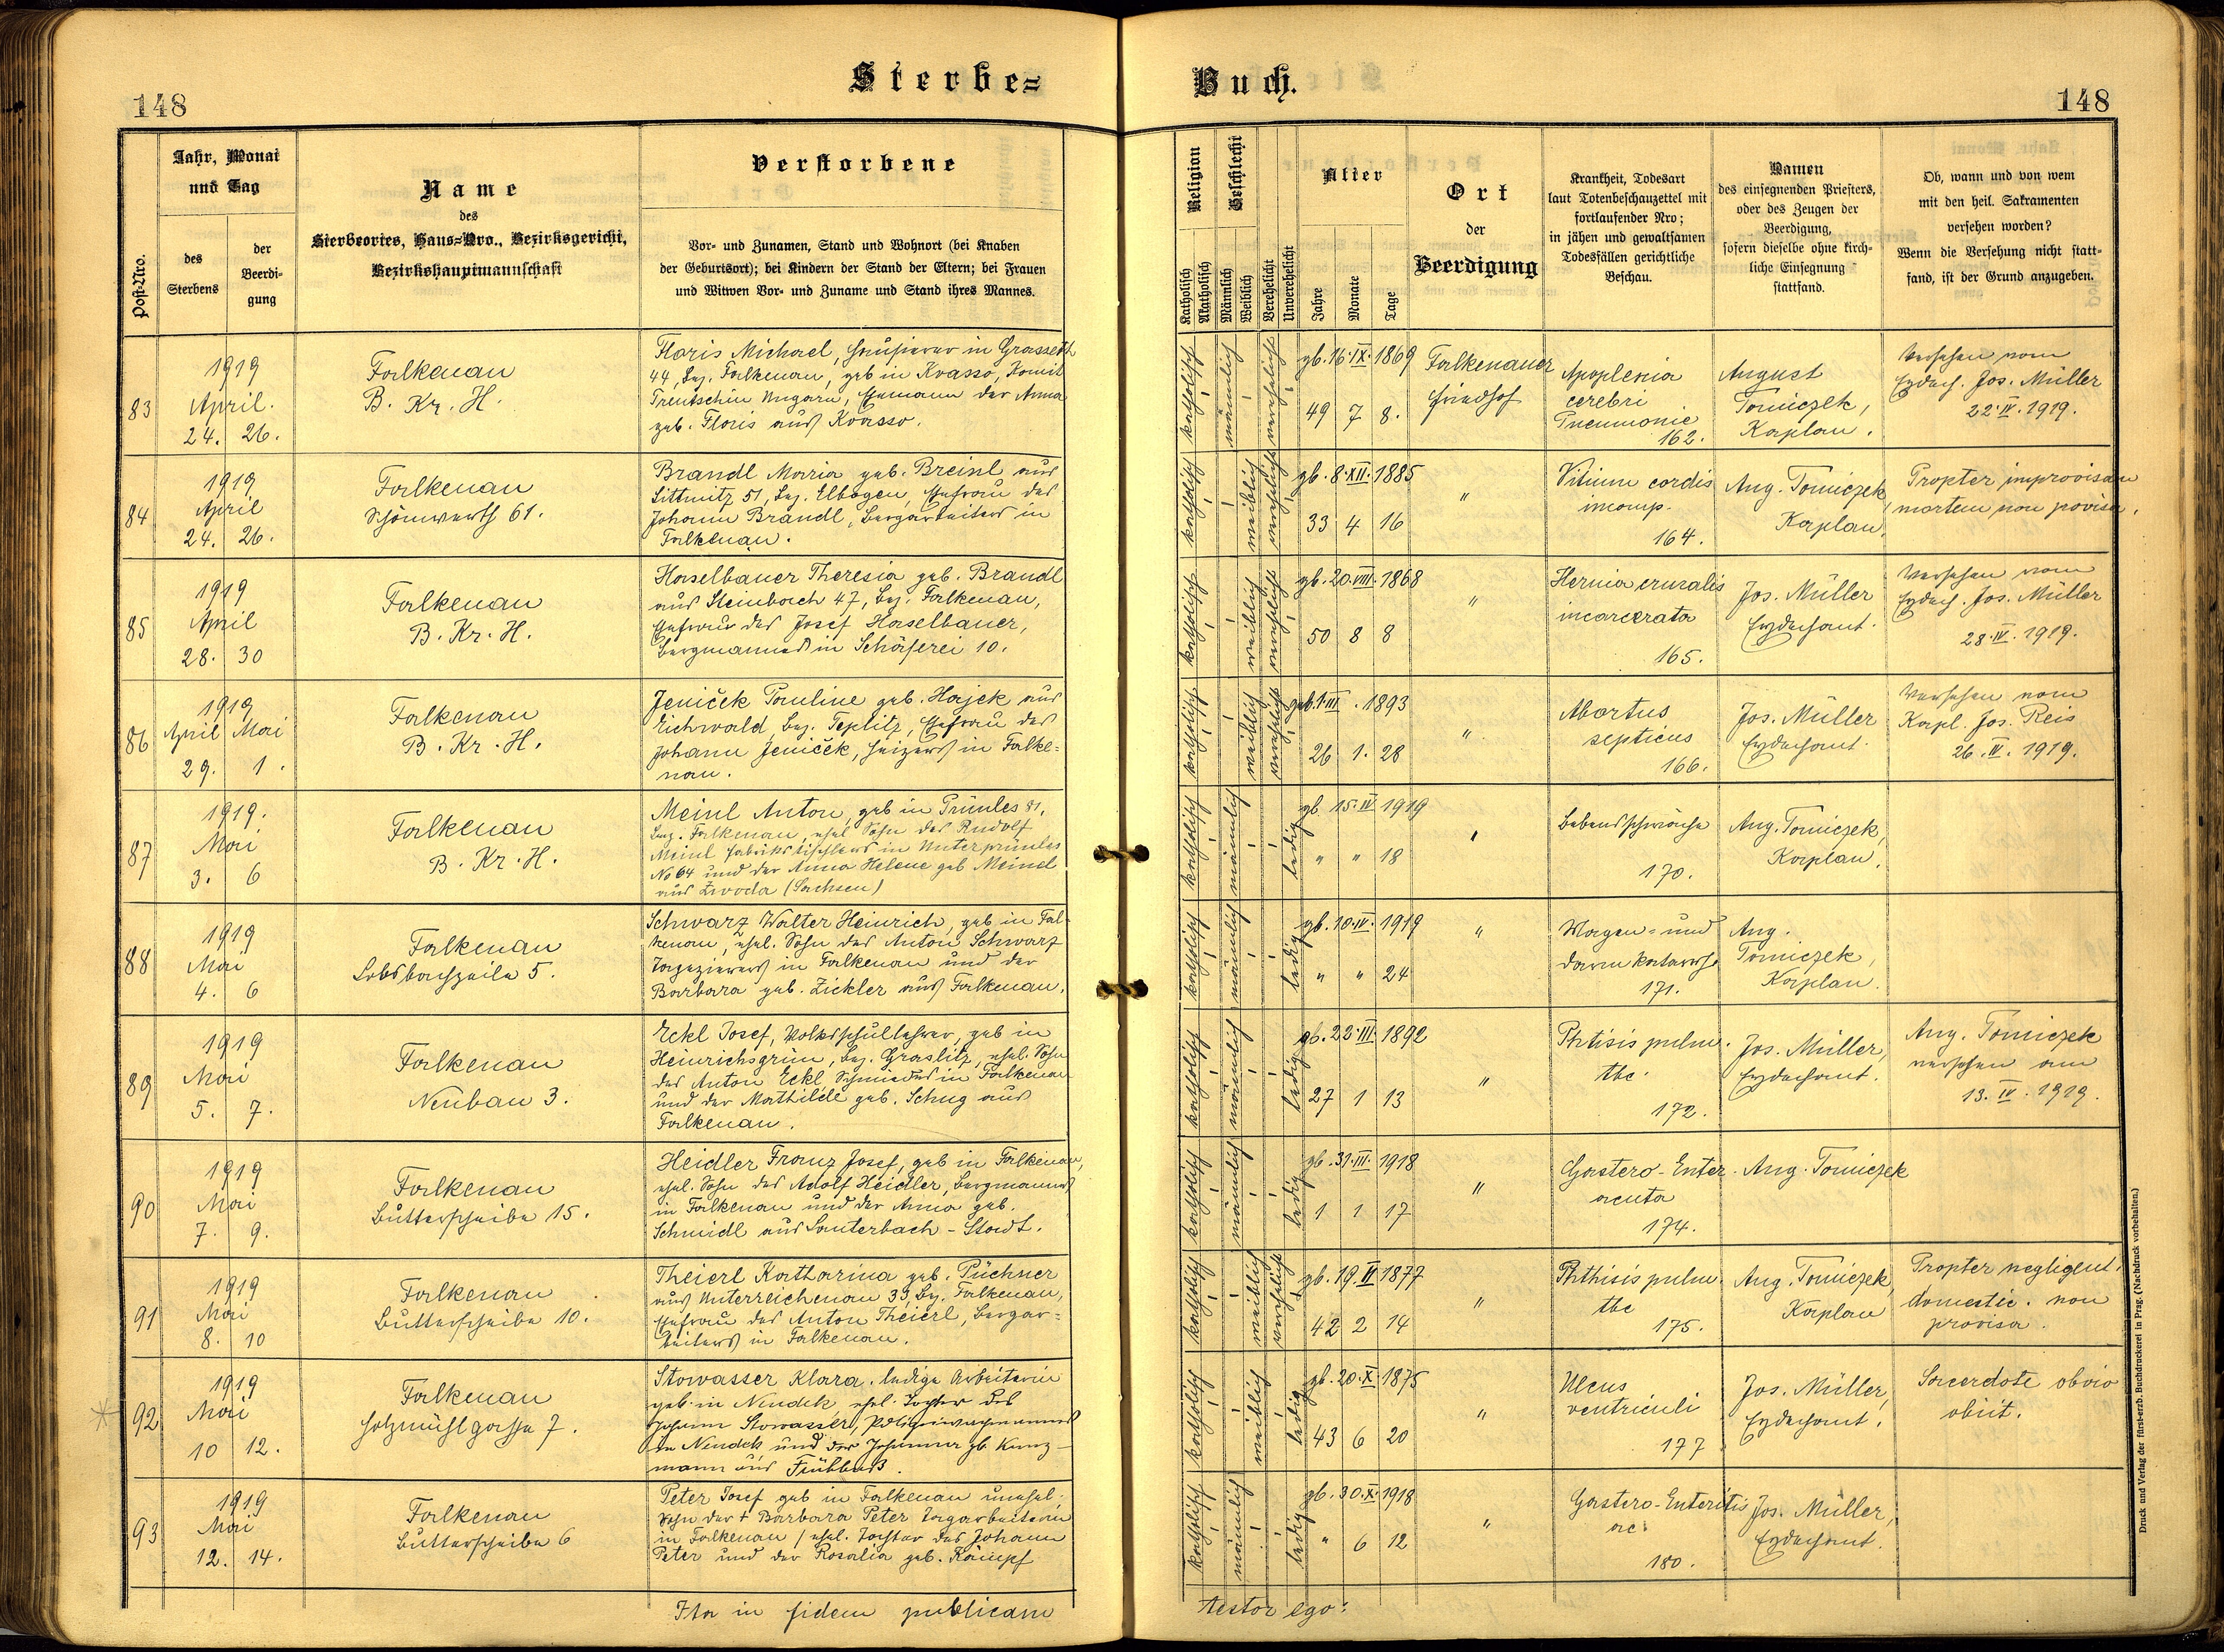 148
Sterbe=
Buch.
148
Post-Nro.
Jahr, Monat
und Tag
des
Sterbens
der
Beerdi-
gung
Name
des
Sterbeortes, Haus=Nro., Bezirksgericht,
Bezirkshauptmannschaft
Verstorbene
Vor- und Zunamen, Stand und Wohnort (bei Knaben
der Geburtsort); bei Kindern der Stand der Eltern; bei Frauen
und Witwen Vor- und Zuname und Stand ihres Mannes.
Religion
Katholisch
Akatholisch
Geschlecht
Männlich
Weiblich
Verehelicht
Unverehelicht
Alter
Jahre
Monate
Tage
Ort
der
Beerdigung
Krankheit, Todesart
laut Totenbeschauzettel mit
fortlaufender Nro;
in jähen und gewaltsamen
Todesfällen gerichtliche
Beschau.
Namen
des einsegnenden Priesters,
oder des Zeugen der
Beerdigung,
sofern dieselbe ohne kirch-
liche Einsegnung
stattfand.
Ob, wann und von wem
mit den heil. Sakramenten
versehen worden?
Wenn die Versehung nicht statt-
fand, ist der Grund anzugeben.
83
1919
April.
24. 26.
Falkenau
B. Kr. H.
Floris Michael, Hausierer in Grasseth
44, Bez. Falkenau, geb in Kvasso, Komit
Trentschin Ungarn, Ehemann der Anna
geb. Floris aus Kvasso.
katholisch
männlich
verehelicht
gb. 16. IX. 1869
49 7 8.
Falkenauer
Friedhof
Apoplexia
cerebri
Pneumonie
162.
August
Tomiczek,
Kaplan.
Versehen vom
Erzdech. Jos. Müller
22. IV. 1919.
84
1919
April
24. 26.
Falkenau
Schönwerth 61.
Brandl Maria geb. Breinl aus
Littmitz 51, Bez. Elbogen, Ehefrau des
Johann Brandl, Bergarbeiters in
Falkenau.
katholisch
weiblich
verehelicht
gb. 8. XII. 1885
33 4 16
"
Vitium cordis
incomp.
164.
Aug. Tomiczek,
Kaplan.
Propter improvisam
mortem non provisa.
85
1919
April
28. 30
Falkenau
B. Kr. H.
Haselbauer Theresia geb. Brandl
aus Steinbach 47, Bez. Falkenau,
Ehefrau des Josef Haselbauer,
Bergmannes in Schäferei 10.
katholisch
weiblich
verehelicht
gb. 20. VIII. 1868
50 8 8
"
Hernia cruralis
incarcerata
165.
Jos. Müller
Erzdechant.
Versehen vom
Erzdech. Jos. Müller
28. IV. 1919.
86
1919
April Mai
29. 1.
Falkenau
B. Kr. H.
Jeniček Pauline geb. Hajek aus
Eichwald, Bez. Teplitz, Ehefrau des
Johann Jeniček, Heizers in Falke=
nau.
katholisch
weiblich
verehelicht
geb. 1. III. 1893
26 1. 28
"
Abortus
septicus
166.
Jos. Müller
Erzdechant.
Versehen vom
Kapl. Jos. Reis
26. IV. 1919.
87
1919.
Mai
3. 6
Falkenau
B. Kr. H.
Meinl Anton, geb in Prünles 81,
Bez. Falkenau, ehel Sohn des Rudolf
Meinl Fabrikstischlers in Unterprünles
No 64 und der Anna Helene geb Meindl
aus Zwoda (Sachsen)
katholisch
männlich
ledig
gb 15. IV 1919
" " 18
"
Lebensschwäche
170.
Aug. Tomiczek,
Kaplan.
88
1919
Mai
4. 6
Falkenau
Lobsbachzeile 5.
Schwarz Walter Heinrich, geb in Fal-
kenau, ehel. Sohn des Anton Schwarz
Tapezierers in Falkenau und der
Barbara geb. Zickler aus Falkenau.
katholisch
männlich
ledig
gb. 10. IV. 1919
" " 24
"
Magen= und
Darmkatarrh.
171.
Aug.
Tomiczek,
Kaplan.
89
1919
Mai
5. 7.
Falkenau
Neubau 3.
Eckl Josef, Volksschullehrer, geb in
Heinrichsgrün, Bez. Graslitz, ehel. Sohn
des Anton Eckl, Schmiedes in Falkenau
und der Mathilde geb. Schug aus
Falkenau.
katholisch
männlich
ledig
gb. 22. III. 1892
27 1 13
"
Phtisis pulm.
tbc.
172.
Jos. Müller,
Erzdechant.
Aug. Tomiczek
versehen am
13. IV. 1919.
90
1919
Mai
7. 9.
Falkenau
Butterscheibe 15.
Heidler Franz Josef, geb in Falkenau,
ehel. Sohn des Adolf Heidler, Bergmannes
in Falkenau und der Anna geb.
Schmidl aus Lauterbach-Stadt.
katholisch
männlich
ledig
gb. 31. III. 1918
1 1 17
"
Gastero-Enter.
acuta
174.
Aug. Tomiczek
91
1919
Mai
8. 10
Falkenau
Butterscheibe 10.
Theierl Katharina geb. Püchner
aus Unterreichenau 39, Bz. Falkenau,
Ehefrau des Anton Theierl, Bergar=
beiters in Falkenau.
katholisch
weiblich
verehelicht
gb. 19. II 1877
42 2 14
"
Phthisis pulm.
tbc
175.
Aug. Tomiczek,
Kaplan
Propter negligent.
domestic. non
provisa.
92
1919
Mai
10 12.
Falkenau
Holzmühlgasse 7.
Stowasser Klara, ledige Arbeiterin
geb. in Neudek, ehel. Tochter des
Johann Stowasser, Polizeiwachmannes
in Neudek und der Johanna gb Kunz-
mann aus Frühbuß.
katholisch
weiblich
ledig
gb. 20. X. 1875
43 6 20
"
Ulcus
ventriculi
177
Jos. Müller,
Erzdechant.
Sacerdote obvio
obiit.
93
1919
Mai
12. 14.
Falkenau
Butterscheibe 6
Peter Josef geb in Falkenau unehel.
Sohn der + Barbara Peter Tagarbeiterin
in Falkenau / ehel. Tochter des Johann
Peter und der Rosalia geb. Kampf
katholisch
männlich
ledig
gb. 30. X. 1918
" 6 12
"
Gastero-Enteritis
ac.
180.
Jos. Müller,
Erzdechant.
Ita in fidem publicam
testor ego:
Druck und Verlag der fürst-erzb. Buchdruckerei in Prag. (Nachdruck vorbehalten.)